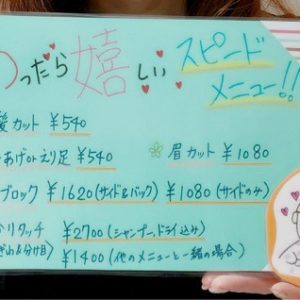 ったら嬉しい スピード
メニュー!!
髪カット ¥540
あげorえり足 ¥540 眉カット ¥1080
ブロック ¥1620(サイド&バック) ¥1080(サイドのみ)
リタッチ ¥2700(シャンプー、ドライ込み)
ぎわ&分け目) ¥1400(他のメニューと一緒の場合)